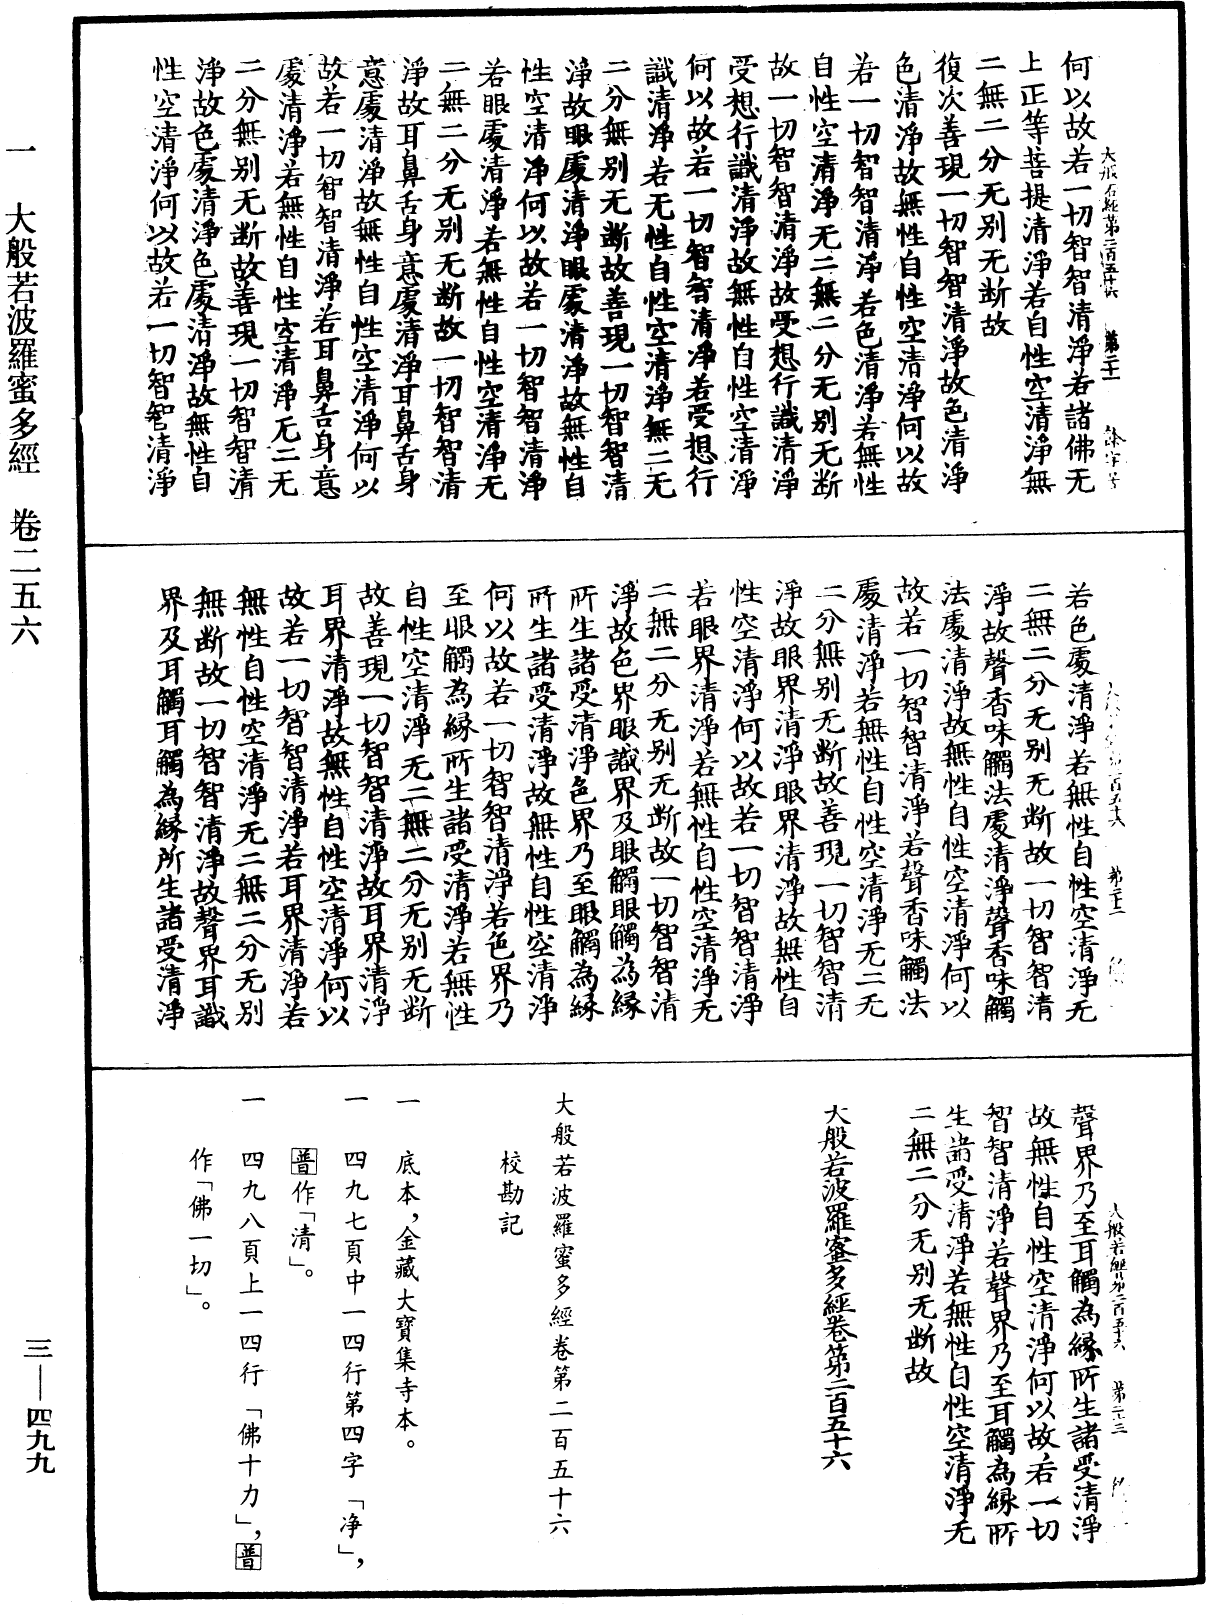 何以故若一切智智清淨若諸佛无
上正等菩提清淨若自性空清淨無
二無二分无别无断故
復次善現一切智智清淨故色清淨
色清淨故無性自性空清淨何以故
若一切智智清淨若色清淨若無性
自性空清淨无二無二分无别无断
故一切智智清淨故受想行識清淨
受想行識清淨故無性自性空清淨
何以故若一切智智清淨若受想行
識清淨若无性自性空清淨無二无
二分無别无断故善現一切智智清
淨故眼處清淨眼處清淨故無性自
性空清淨何以故若一切智智清淨
若眼處清淨若無性自性空清淨无
二無二分无别无断故一切智智清
淨故耳鼻舌身意處清淨耳鼻舌身
意處清淨故無性自性空清淨何以
故若一切智智清淨若耳鼻舌身意
處清淨若無性自性空清淨无二无
二分無别无断故善現一切智智清
淨故色處清淨色處清淨故無性自
性空清淨何以故若一切智智清淨
大般若經第二百五十六 第二十一
若色處清淨若無性自性空清淨无
二無二分无别无断故一切智智清
淨故聲香味觸法處清淨聲香味觸
法處清淨故無性自性空清淨何以
故若一切智智清淨若聲香味觸法
處清淨若無性自性空清淨无二无
二分無别无断故善現一切智智清
淨故眼界清淨眼界清淨故無性自
性空清淨何以故若一切智智清淨
若眼界清淨若無性自性空清淨无
二無二分无别无断故一切智智清
淨故色界眼識界及眼觸眼觸為緣
所生諸受清淨色界乃至眼觸為緣
所生諸受清淨故無性自性空清淨
何以故若一切智智清淨若色界乃
至眼觸為緣所生諸受清淨若無性
自性空清淨无二無二分无别无断
故善現一切智智清淨故耳界清淨
耳界清淨故無性自性空清淨何以
故若一切智智清淨若耳界清淨若
無性自性空清淨无二無二分无别
無断故一切智智清淨故聲界耳識
界及耳觸耳觸為緣所生諸受清淨
百五十六 第二十二
聲界乃至耳觸為緣所生諸受清淨
故無性自性空清淨何以故若一切
智智清淨若聲界乃至耳觸為緣所
生諸受清淨若無性自性空清淨无
二無二分无别无断故
大般若波羅蜜多經卷第二百五十六
大般若經第二百五十六 第二十三
大般若波羅蜜多經卷第二百五十六
校勘記
一 底本，金藏大寶集寺本。
一 四九七頁中一四行第四字「淨」，
普作「清」。
一 四九八頁上一四行「佛十力」，普
作「佛一切」。
一 大般若波羅蜜多經 卷二五六
三—四九九